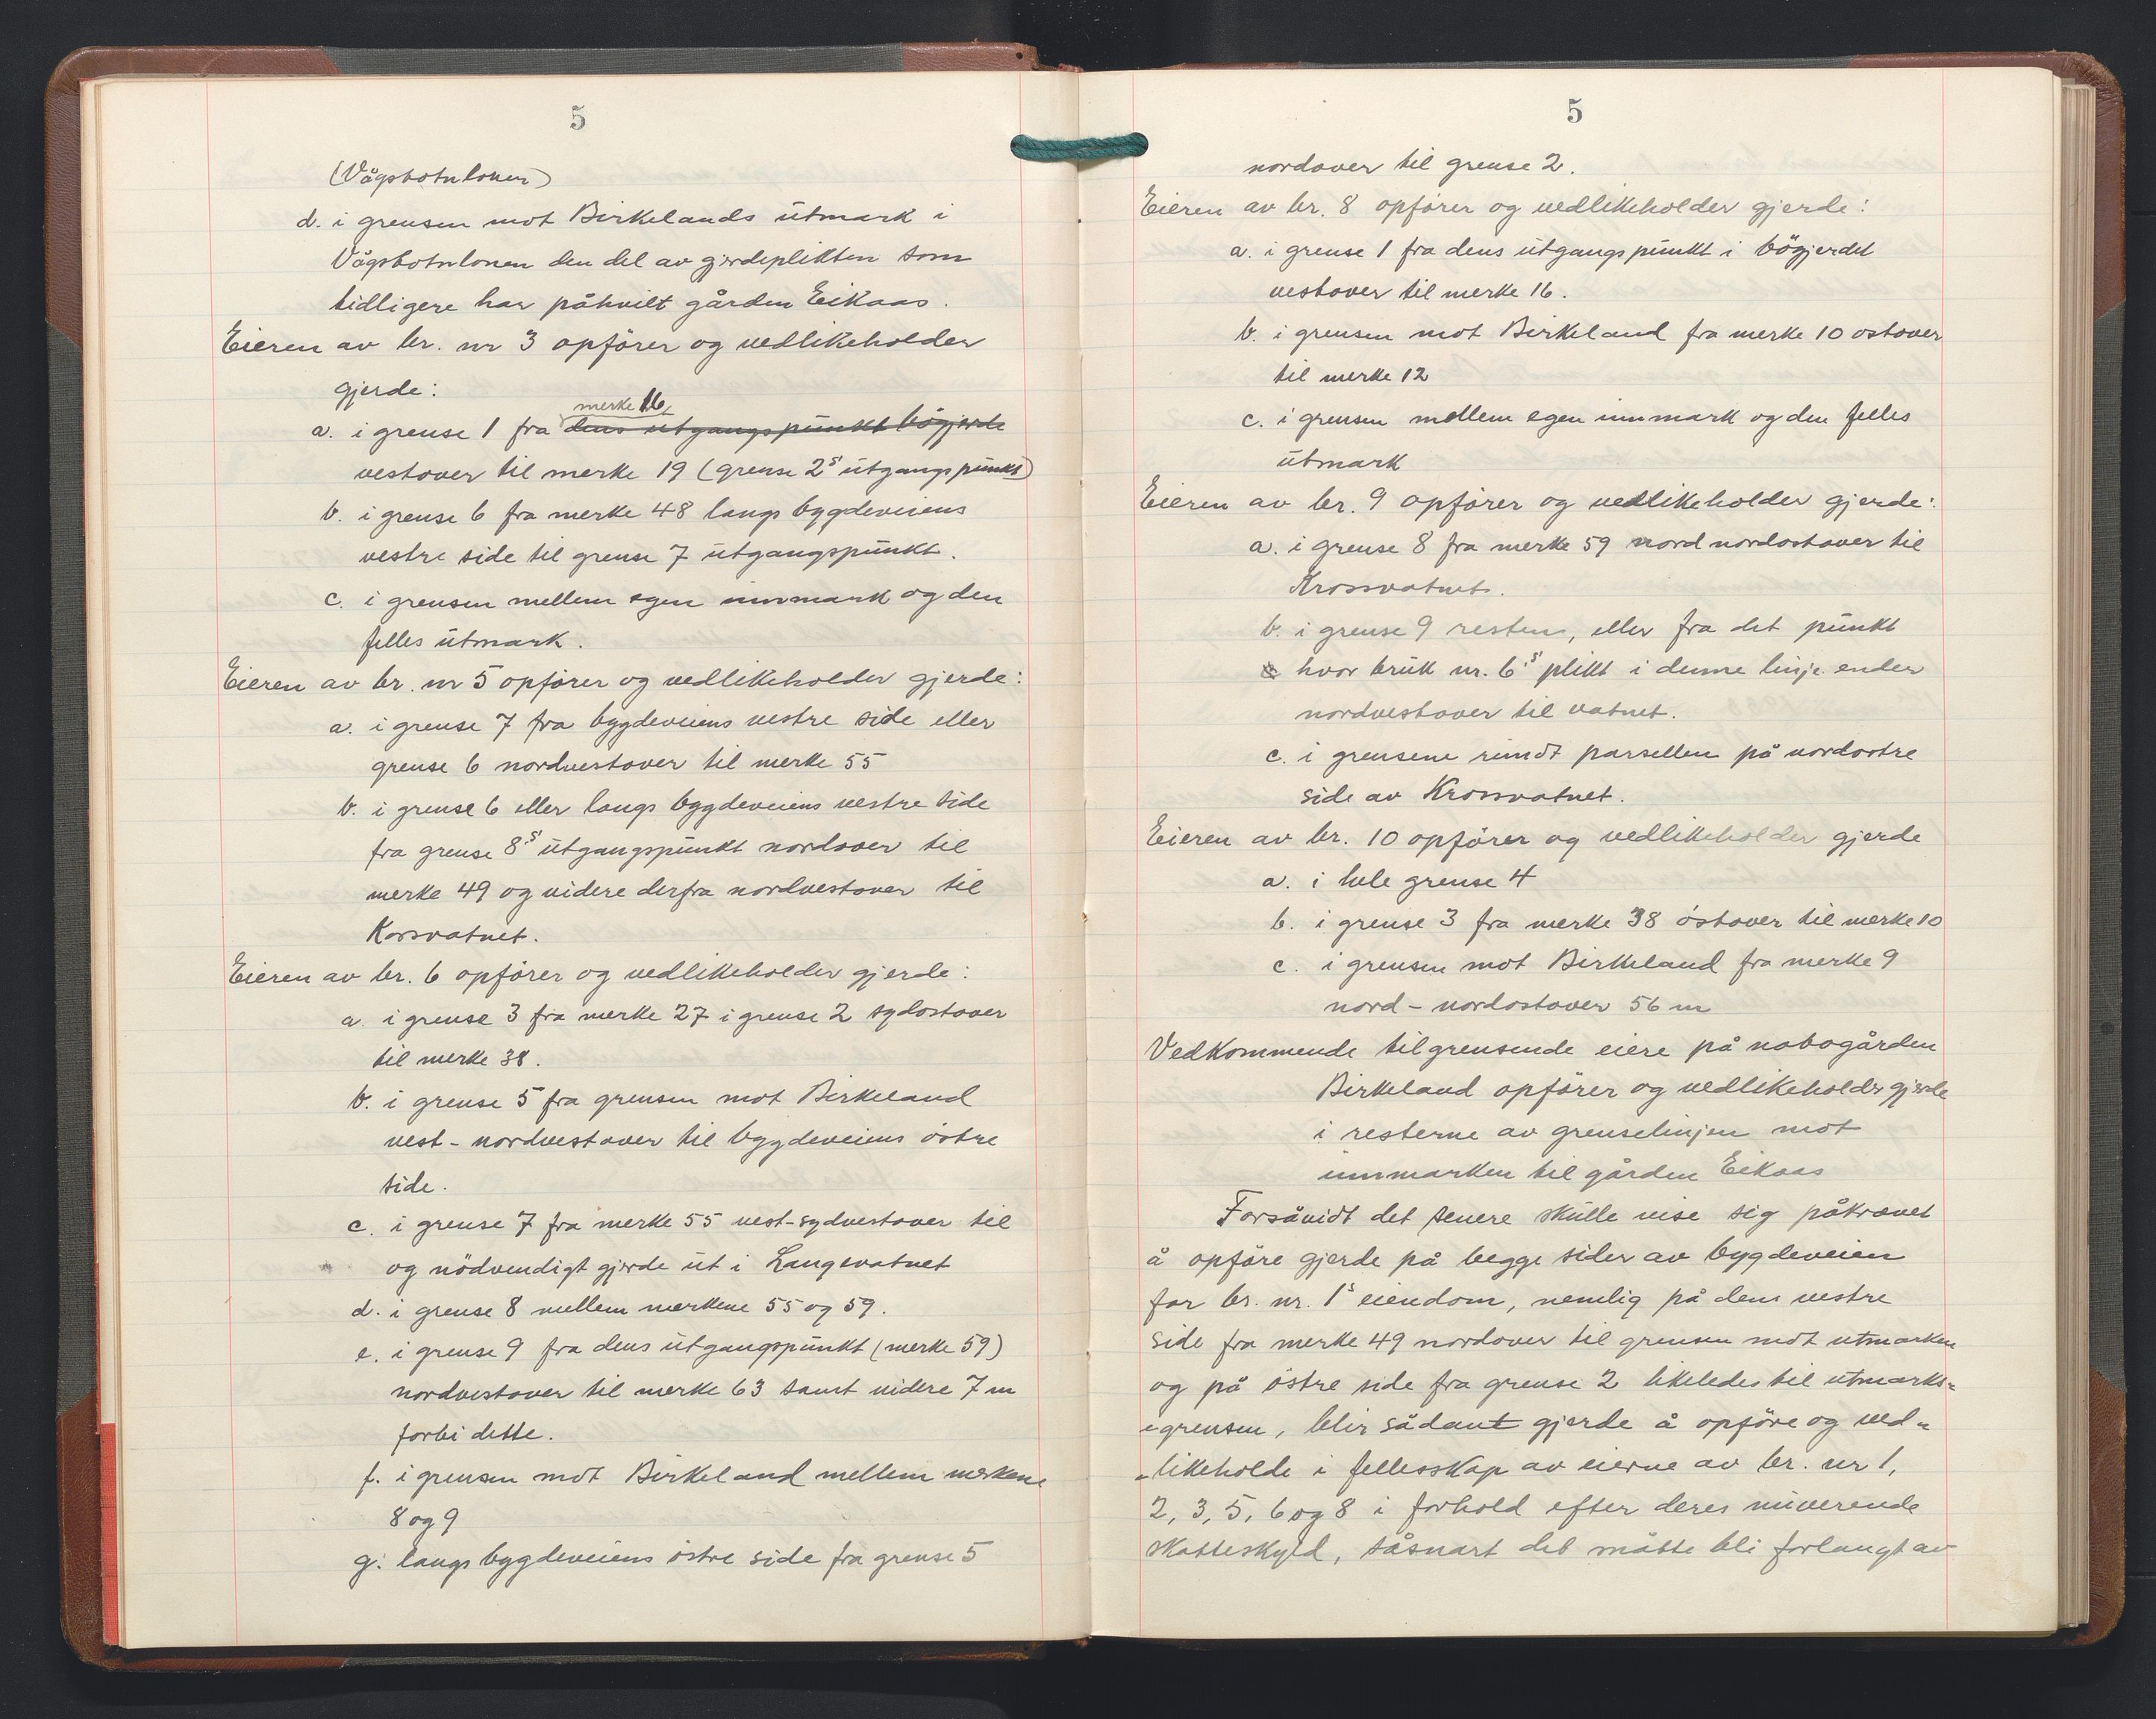 5
(Vågsbotnlonen)
d. i grensen mot Birkelands utmark i
Vågsbotnlonen den del av gjerdeplikten som
tidligere har påhvilt gården Eikaas.
Eieren av br. nr 3 opfører og vedlikeholder
gjerde:
merke 16
a. i grense 1 fra dens utgangspunkt bögjerde
vestover til merke 19 (grense 2s utgangspunkt)
b. i grense 6 fra merke 48 langs bygdeveiens
vestre side til grense 7 utgangspunkt.
c. i grensen mellem egen innmark og den
felles utmark.
Eieren av br. nr 5 opförer og vedlikeholder gjerde:
a. i grense 7 fra bygdeveiens vestre side eller
grense 6 nordvestover til merke 55
b. i grense 6 eller langs bygdeveiens vestre side
fra grense 8s utgangspunkt nordover til
merke 49 og videre derfra nordvestover til
Korsvatnet.
Eieren av br. 6 opförer og vedlikeholder gjerde:
a. i grense 3 fra merke 27 i grense 2 sydostover
til merke 38.
b. i grense 5 fra grensen mot Birkeland
vest-nordvestover til bygdeveiens östre
side.
c. i grense 7 fra merke 55 vest-sydvestover til
og nödvendigt gjerde ut i Langevatnet
d. i grense 8 mellem merkene 55 og 59.
e. i grense 9 fra dens utgangspunkt (merke 59)
nordvestover til merke 63 samt videre 7 m
forbi dette.
f. i grensen mot Birkeland mellem merkene
8 og 9
g. langs bygdeveiens östre side fra grense 5
5
nordover til grense 2.
Eieren av br. 8 opförer og vedlikeholder gjerde:
a. i grense 1 fra dens utgangspunkt i bögjerdet
vestover til merke 16.
b. i grensen mot Birkeland fra merke 10 ostover
til merke 12
c. i grensen mellem egen innmark og den felles
utmark
Eieren av br. 9 opförer og vedlikeholder gjerde:
a. i grense 8 fra merke 59 nord nordostover til
Krossvatnet.
b. i grense 9 resten, eller fra det punkt
hvor bruk nr. 6s plikt i denne linje ender
nordvestover til vatnet.
c. i grensene rundt parsellen på nordostre
side av Krossvatnet.
Eieren av br. 10 opförer og vedlikeholder gjerde
a. i hele grense 4
b. i grense 3 fra merke 38 östover til merke 10
c. i grensen mot Birkeland fra merke 9
nord-nordostover 56 m
Vedkommende tilgrensende eiere på nabogården
Birkeland opförer og vedlikeholder gjerde
i resterne av grenselinjen mot
innmarken til gården Eikaas
Forsåvidt det senere skulle vise sig påkrævet
å opföre gjerde på begge sider av bygdeveien
for br. nr. 1s eiendom, nemlig på dens vestre
side fra merke 49 nordover til grensen mot utmarken
og på östre side fra grense 2 likeledes til utmarks-
grensen, blir sådant gjerde å opföre og ved-
likeholde i fellesskap av eierne av br. nr 1,
2, 3, 5, 6 og 8 i forhold efter deres nuverende
skatteskyld, såsnart det måtte bli forlangt av